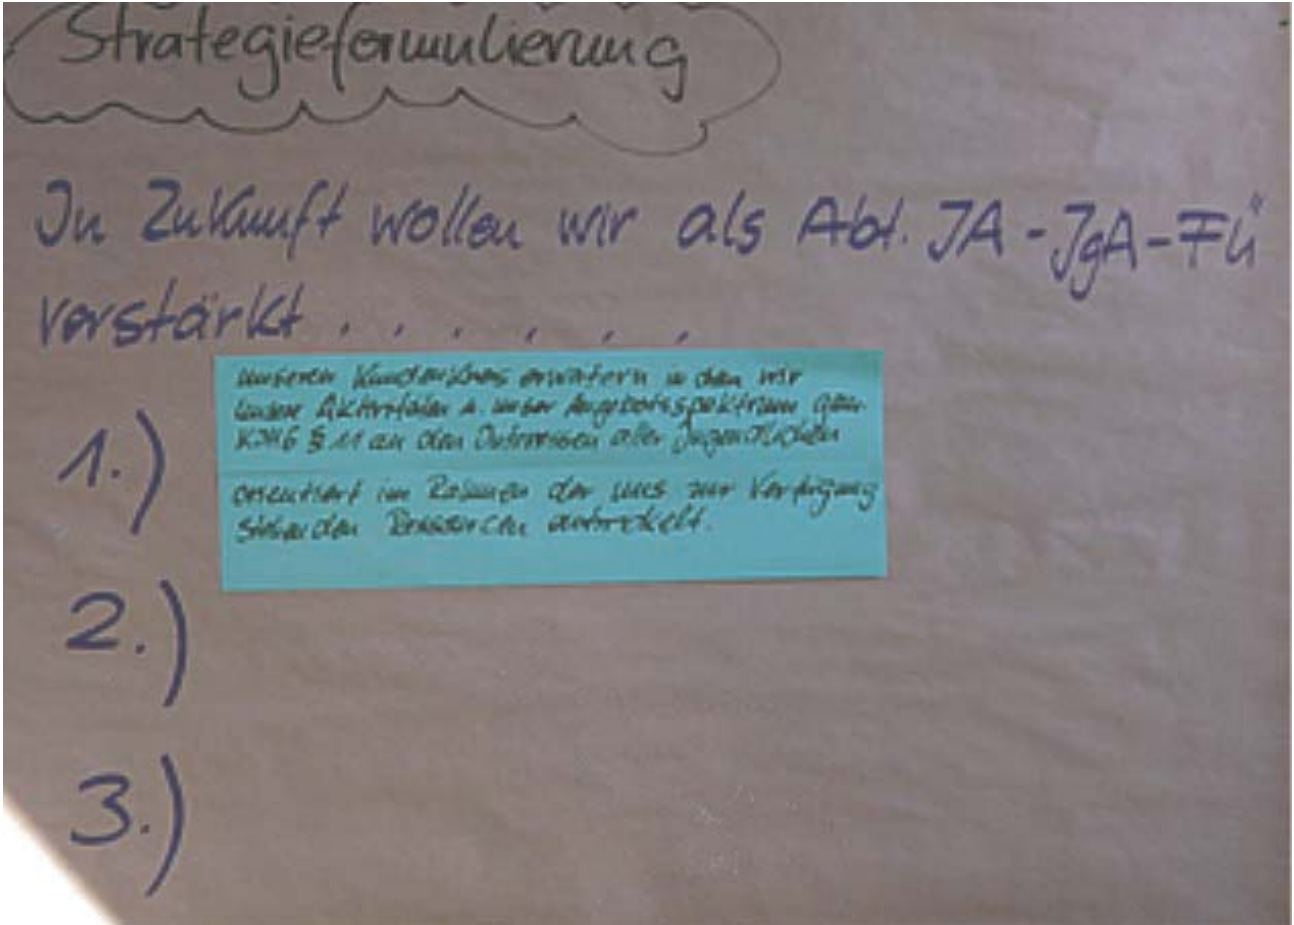 Strategieformulierung
In Zukunft wollen wir als Abt. JA - JgA - Fü
verstärkt . . . . . . .
1.)
unseren Kundenkreis erweitern in dem wir
unsere Aktivitäten u. unser Angebotsspektrum gem.
KJHG § 11 an den Interessen aller Jugendlichen
orientiert im Rahmen der uns zur Verfügung
stehenden Ressourcen entwickelt.
2.)
3.)